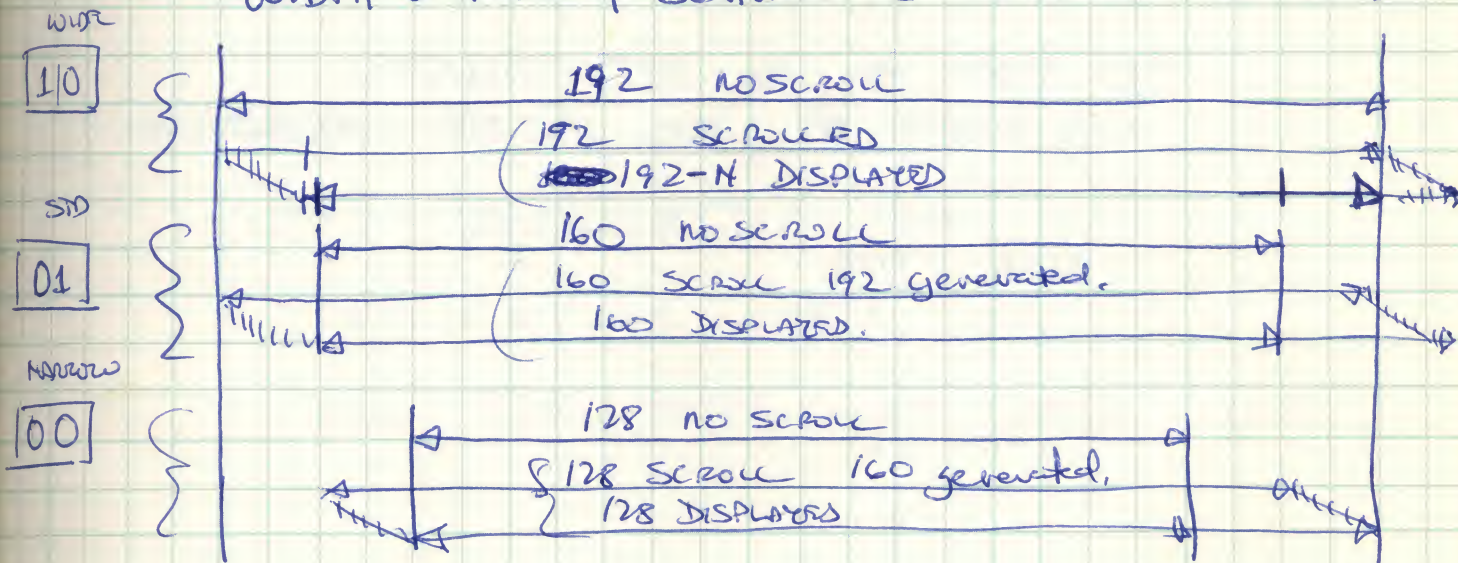 WIDE
10
192 NO SCROLL
192 SCROLLED
192-N DISPLAYED
STD
01
160 NO SCROLL
160 SCROLL 192 generated.
160 DISPLAYED.
NARROW
00
128 NO SCROLL
128 SCROLL 160 generated.
128 DISPLAYED